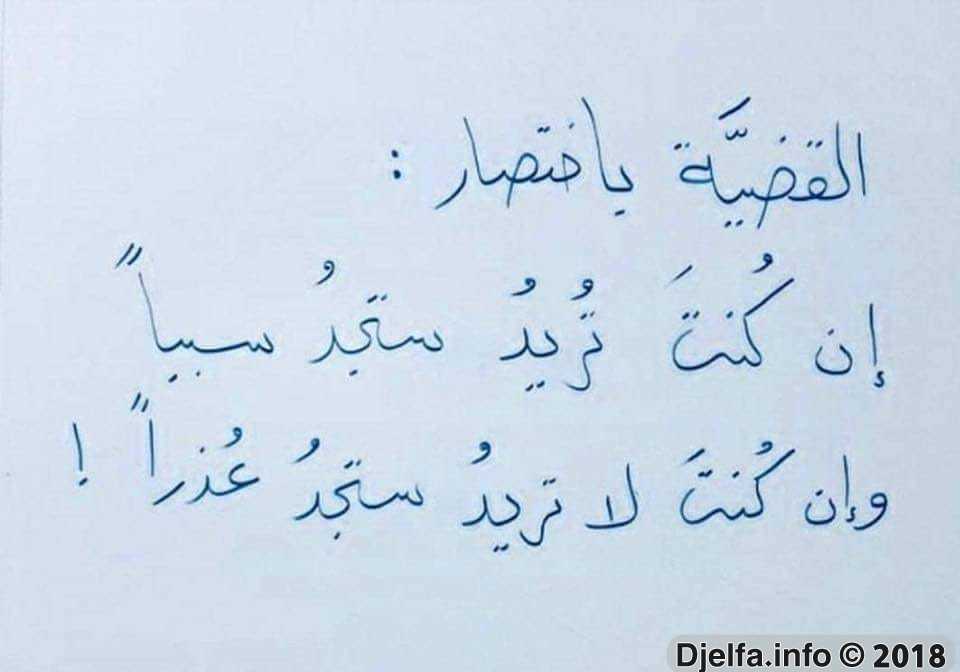 القضيَّة باختصار :
إن كُنتَ تُريدُ ستجدُ سبباً
وإن كُنتَ لا تريدُ ستجدُ عُذراً !
Djelfa.info © 2018